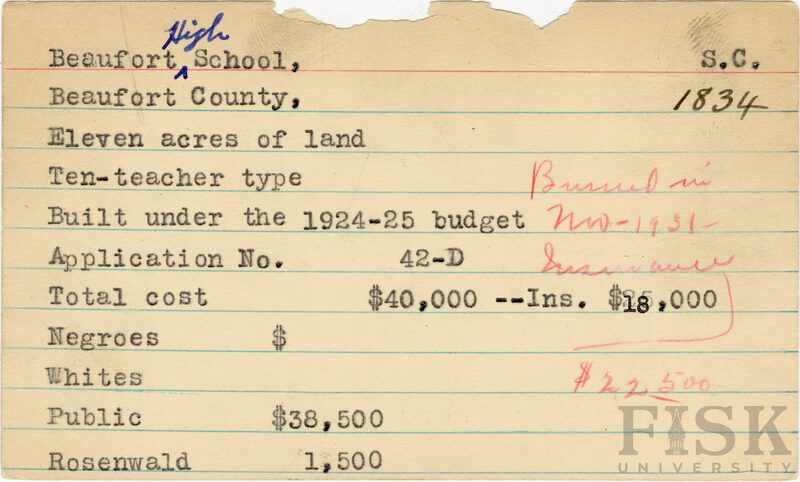 High
Beaufort ^ School, S.C.
Beaufort County, 1834
Eleven acres of land
Ten-teacher type Burned in
Built under the 1924-25 budget Nov-1931-
Application No. 42-D Insurance
Total cost $40,000 --Ins. $18,000
Negroes $
Whites $22,500
Public $38,500
Rosenwald 1,500
FISK
UNIVERSITY